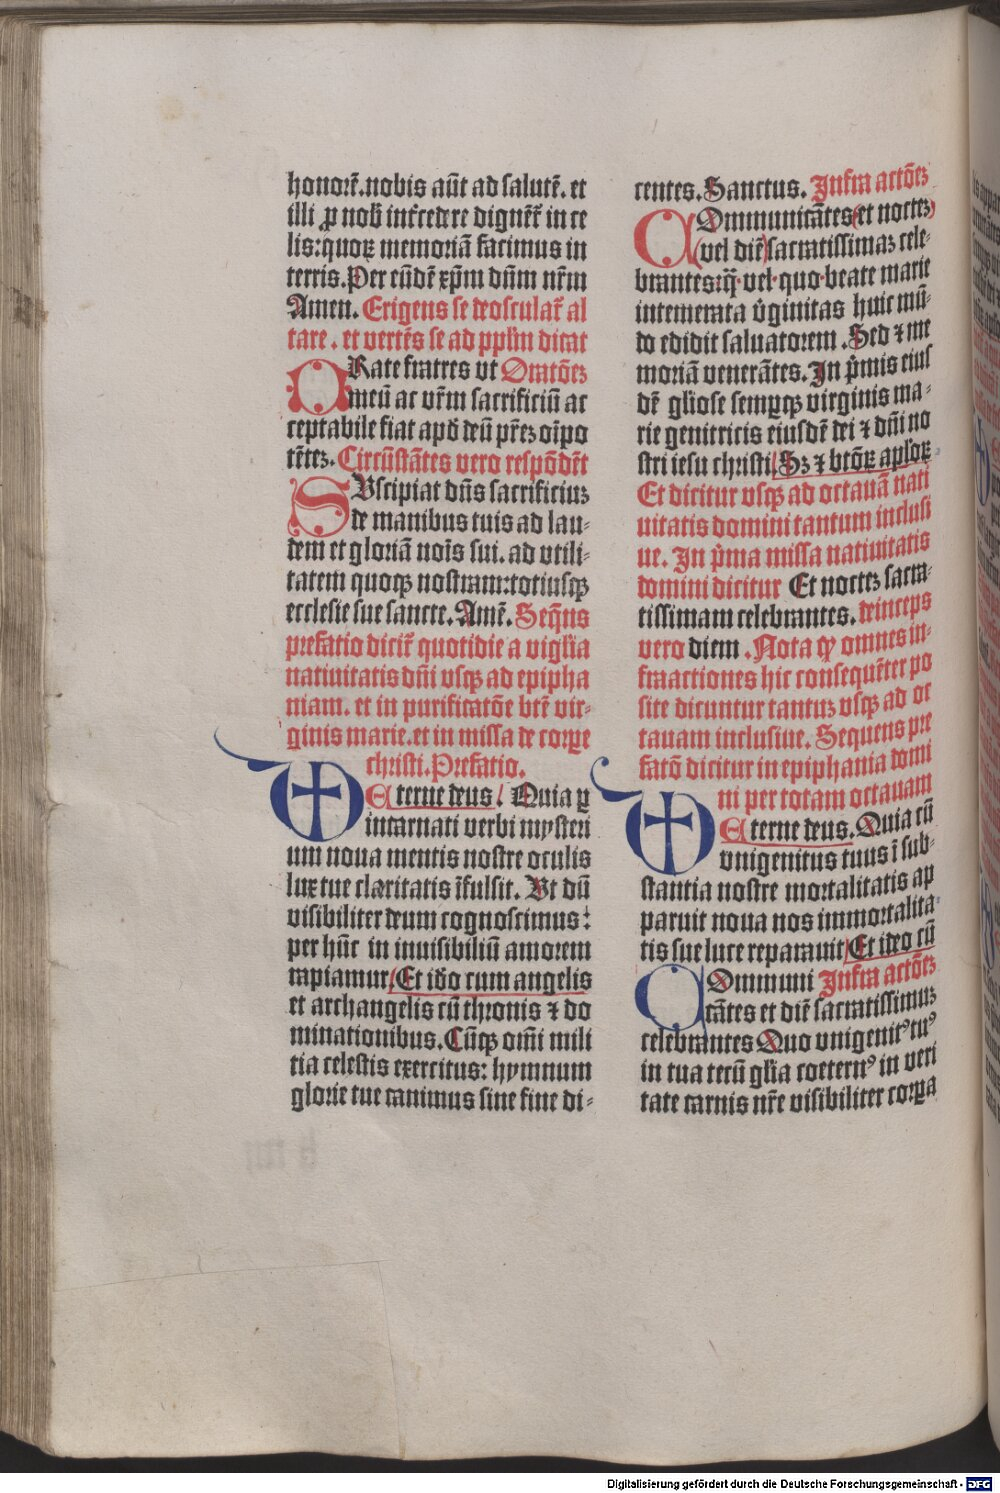 honorē.nobis aūt ad salutē. et
illi ꝓ nob̄ int̄cedere dignēt̄ in ce
lis:quoꝝ memoriā facimus in
terris.Per eūdē xp̄m dn̄m nr̄m
Amen. Erigens se deosculat̄ al
tare . et vertēs se ad ppl̄m dicat
ORate fratres vt Oratōeꝫ
meū ac vr̄m sacrificiū ac
ceptabile fiat apd̄ deū pr̄eꝫ oīpo
tēteꝫ. Circūstātes vero respōdēt
SUscipiat dn̄s sacrificiuꝫ
de manibus tuis ad lau⸗
dem et gloriā nōis sui. ad vtili⸗
tatem quoqꝫ nostram:totiusqꝫ
ecclesie sue sancte. Amē. Seqn̄s
prefatio dicit̄ quotidie a vigl̄ia
natiuitatis dn̄i vsqꝫ ad epipha
niam. et in purificatōe bt̄e vir⸗
ginis marie.et in missa de corꝑe
christi.Prefatio.
UEterne deus. Quia ꝑ
incarnati verbi mysteri
um noua mentis nostre oculis
lux tue claritatis īfulsit. Ut dū
visibiliter deum cognoscimus:
per hūc in inuisibiliū amorem
rapiamur Et id̄o cum angelis
et archangelis cū thronis ⁊ do
minationibus. Cūqꝫ om̄i mili
tia celestis exercitus: hymnum
glorie tue canimus sine fine di⸗
centes. Sanctus. Infra actōeꝫ
COmmunicātes (et nocteꝫ)
(vel diē) sacratissimaꝫ cele⸗
brantes:q̄ vel quo beate marie
intemerata v̓ginitas huic mū⸗
do edidit saluatorem. Sed ⁊ me
moriā venerātes. In p̓mis eius
dē gl̄iose semꝑqꝫ virginis ma⸗
rie genitricis eiusdē dei ⁊ dn̄i no
stri iesu christi. Sꝫ ⁊ btōꝝ apl̄oꝝ
Et dicitur vsqꝫ ad octauā nati
uitatis domini tantum inclusi
ue. In p̓ma missa natiuitatis
domini dicitur Et nocteꝫ sacra⸗
tissimam celebrantes. deinceps
vero diem . Nota ꝙ omnes in⸗
fraactiones hic consequēter po
site dicuntur tantuꝫ vsqꝫ ad oc
tauam inclusiue. Sequens pre
fatō dicitur in epiphania domi
ni per totam octauam
UEterne deus. Quia cū
vnigenitus tuus ī sub⸗
stantia nostre mortalitatis ap
paruit noua nos immortalita⸗
tis sue luce reparauit Et ideo cū
COmmuni Infra actōeꝫ
cātes et diē sacratissimuꝫ
celebrantes Quo vnigenitꝰ tuꝰ
in tua tecū gl̄ia coeternꝰ in veri
tate carnis nr̄e visibiliter corꝑa
Digitalisierung gefördert durch die Deutsche Forschungsgemeinschaft - DFG